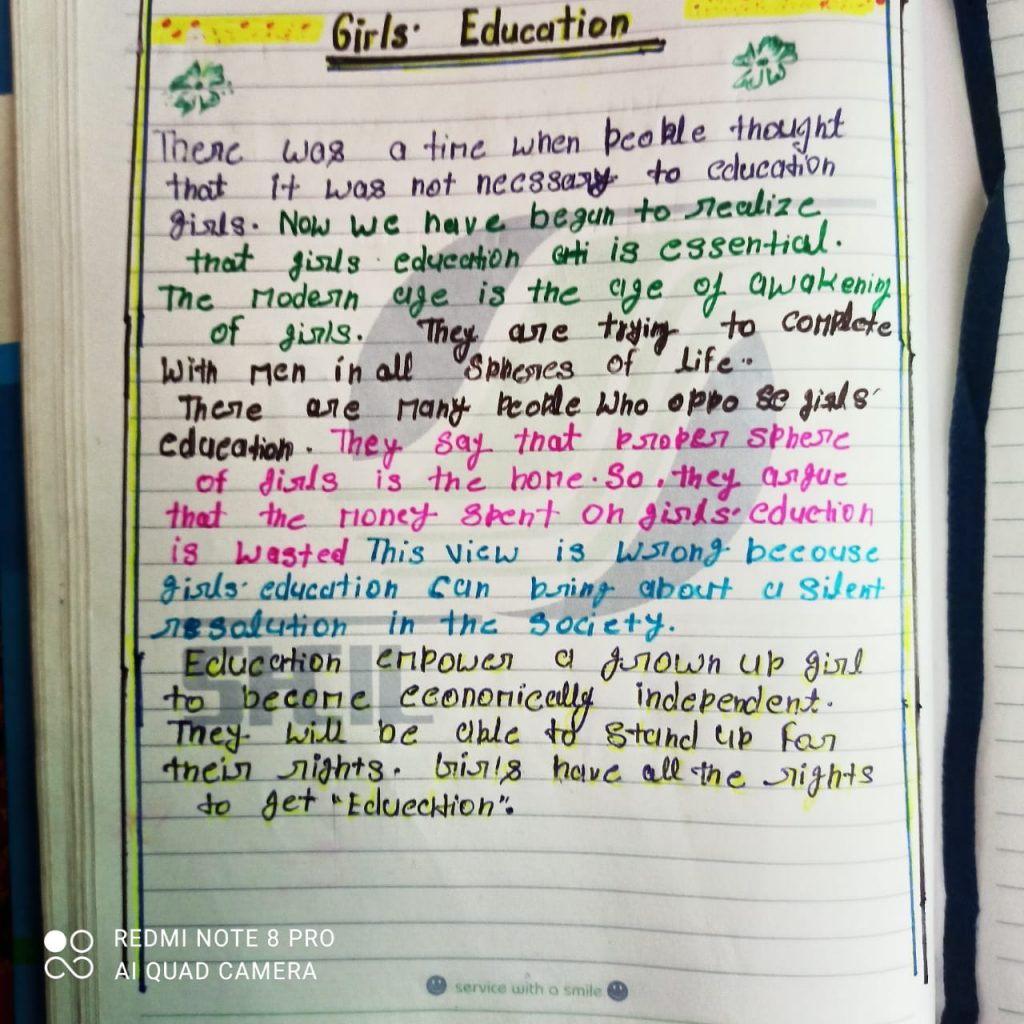 Girls. Education
There was a time when people thought
that it was not necssary to education
girls. Now we have begun to realize
that girls education is essential.
The modern age is the age of awakening
of girls. They are trying to complete
with men in all spheres of life..
There are many people who oppose girls'
education. They say that proper sphere
of girls is the home. So, they argue
that the money spent on girls. eduction
is wasted This view is wrong becouse
girls. education can bring about a silent
resolution in the society.
Education empower a grown up girl
to become economically independent.
They will be able to stand up for
their rights. Girls have all the rights
to get "Education".
SAIL
REDMI NOTE 8 PRO
AI QUAD CAMERA
service with a smile